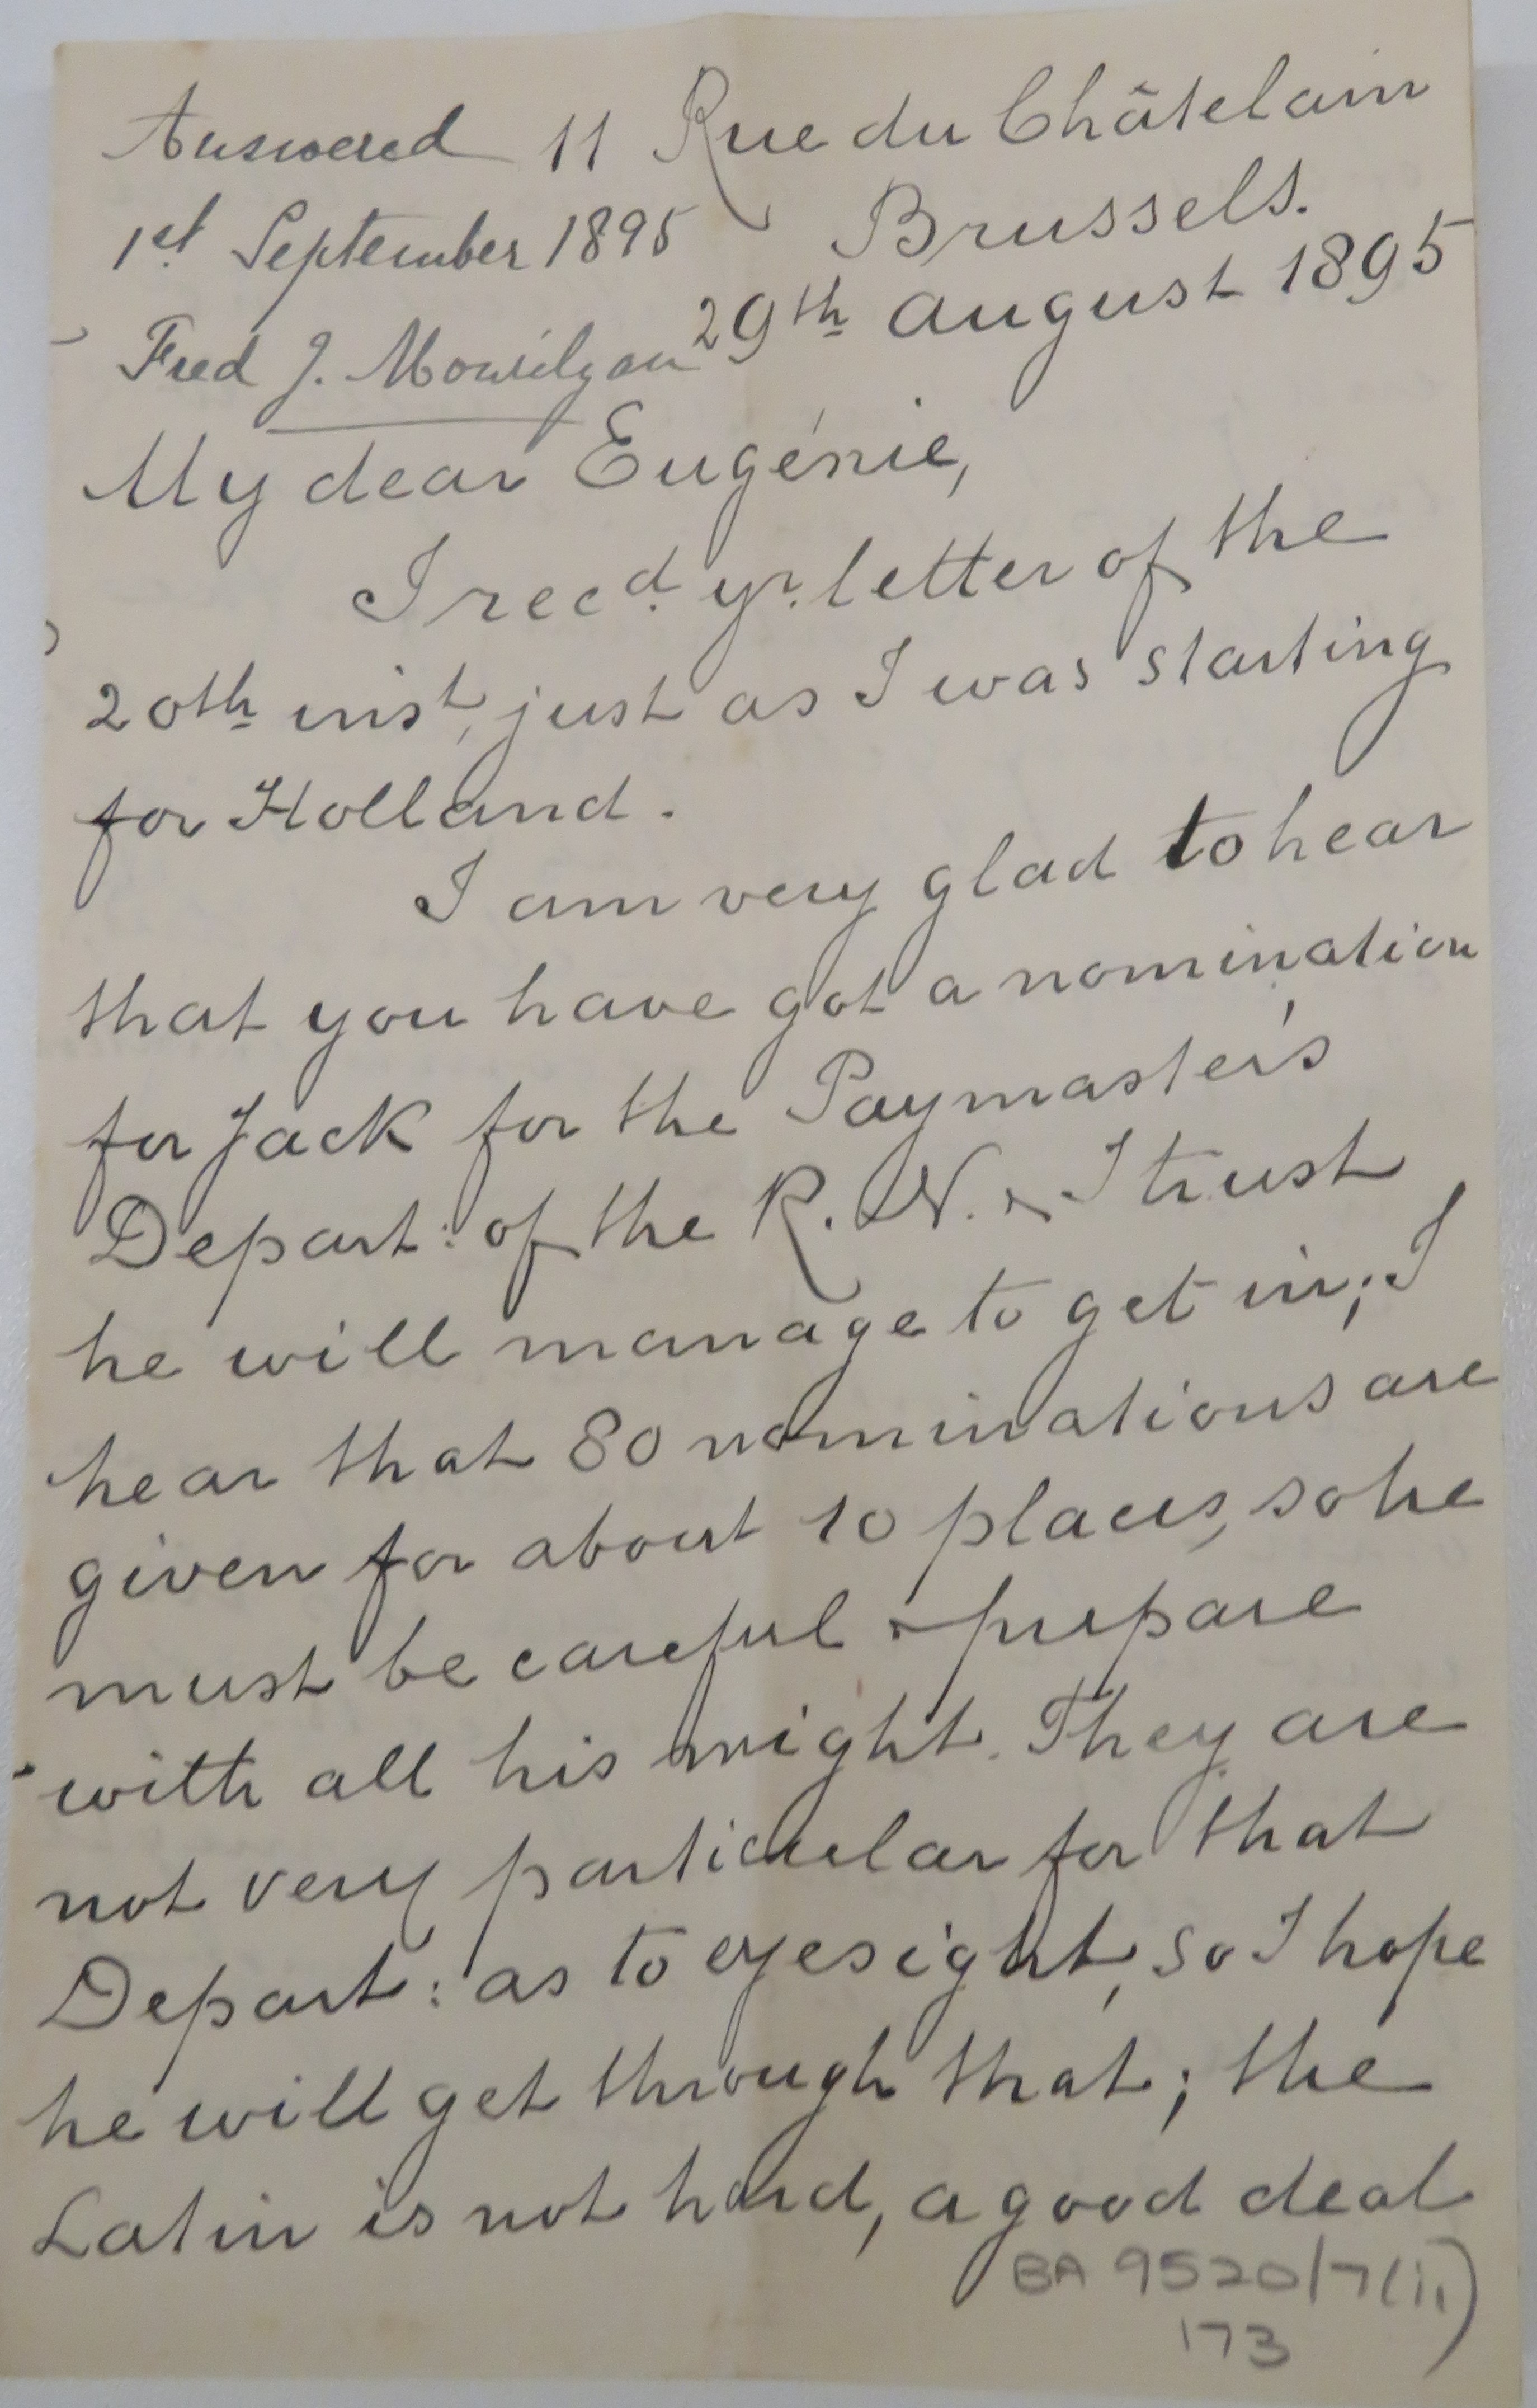 Answered
1st September 1895
Fred J. Mowilyan
11 Rue du Châtelain
Brussels.
29th august 1895
My dear Eugénie,
I recd. yr. letter of the
20th inst, just as I was starting
for Holland.
I am very glad to hear
that you have got a nomination
for Jack for the Paymaster's
Depart: of the R. N. & I trust
he will manage to get in; I
hear that 80 nominations are
given for about 10 places, so he
must be careful & prepare
with all his might. They are
not very particular for that
Depart: as to eyesight, so I hope
he will get through that; the
Latin is not hard, a good deal
BA 9520/7(ii)
173